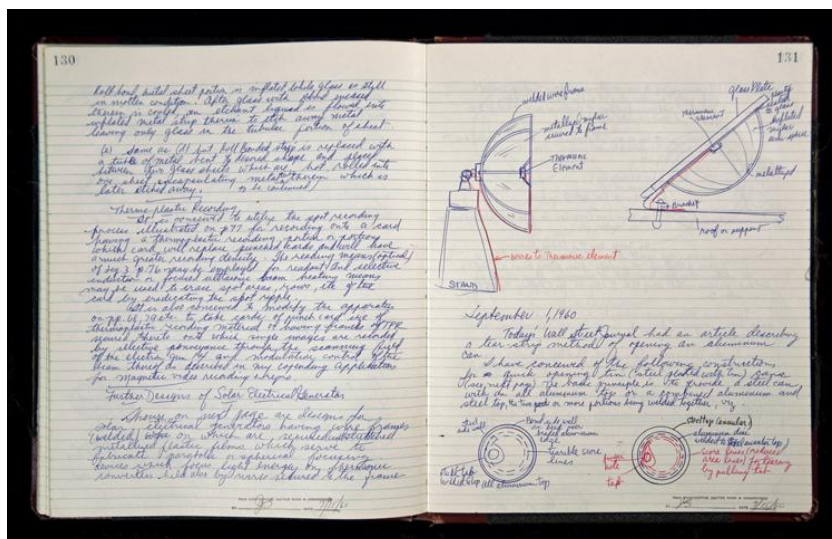 130
Roll bond metal sheet portion is inflated while glass is still
in molten condition. After glass with tube encased
therein is cooled, an etchant liquid is flowed into
inflated metal strip therein to etch away metal
leaving only glass in the tubular portion of sheet.
(e) Same as (d) but Roll Bonded strip is replaced with
a tube of metal bent to desired shape and placed
between two glass sheets which are hot rolled into
one sheet encapsulating metal therein which is
later etched away. to be continued
Thermoplastic Recording
It is conceived to utilize the spot recording
process illustrated on p 77 for recording onto a card
having a thermoplastic recording portion or portions
which card will replace punched cards and will have
a much greater recording density. The reading means (optical)
of fig 3 p. 76 may be employed for readout and selective
induction or focused beam heating means
may be used to erase spot areas, rows, etc of the
card by eradicating the spot ripple.
It is also conceived to modify the apparatus
on pp. 68, 70 etc to take cards of punch card size of
thermoplastic recording material or having frames of TPR
secured thereto on which single images are recorded
by selective conveyance through the scanning field
of the electron gun and modulating control of the
beam thereof as described in my copending applications
for magnetic video recording
Further Designs of Solar Electrical Generator
Shown on next page are designs for
solar electrical generators having wire frames
(welded) wire on which are stretched
metallized plastic films which serve to
fabricate parabolic or spherical
devices which focus light energy on thermionic
converters held also by wires secured to the frame
131
welded wire frame
metallized mylar
secured to frame
Thermionic
Element
wires to thermionic element
STAND
glass Plate
thermionic
element
to glass
inflated
mylar
metallized
Bracket
roof or support
September 1, 1960
Today's Wall Street Journal had an article describing
a tear-strip method of opening an aluminum
can.
I have conceived of the following constructions
for a quick opening tin (steel plated with tin) cans
(see next page) The basic principle is to provide a steel can
with an all aluminum top or a combined aluminum and
steel top, the two or more portions being welded together, viz
Steel
side wall
Bend side wall
edge
tearable score
lines
all aluminum top
finger
hole
tab
steel top (annular)
aluminum disc
welded to steel annular top)
score lines (reduced
area lines) for tearing
by pulling tab